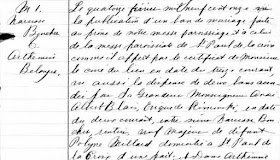 M 1.
Narcisse
Bouche
&
Arthémise
Belanger
Le quatorze février mil neuf cent onze vu
la publication d'un ban de mariage faite
au prône de notre messe paroissiale et à celui
de la messe paroissiale de St Paul de la Croix
comme il appert par le certificat de Monsieur
le curé du lieu en date du treize courant,
vu aussi la dispense de deux bans accor
dée par Sa Grandeur Monseigneur André
Albert Blais, Evêque de Rimouski, en date
du deux courant, entre sieur Narcisse Bou
che, veuf majeur de défunte
Millard domiciliée à St Paul de
la Croix d'une part, et Dame Arthémise